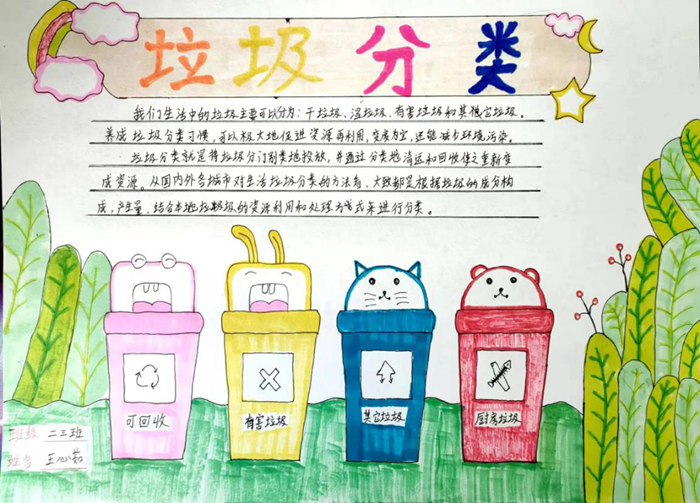 垃圾分类
我们生活中的垃圾主要可以分为：干垃圾、湿垃圾、有害垃圾和其他它垃圾。
养成垃圾分类习惯，可以极大地促进资源再利用，变废为宝，还能减少环境污染。
垃圾分类就是将垃圾分门别类地投放，并通过分类地清运和回收使之重新变
成资源。从国内外各城市对生活垃圾分类的方法看，大致都是根据垃圾的成分构
成，产生量，结合本地垃圾的资源利用和处理方式来进行分类。
可回收
有害垃圾
其它垃圾
厨房垃圾
班级 二三班
姓名 王心茹